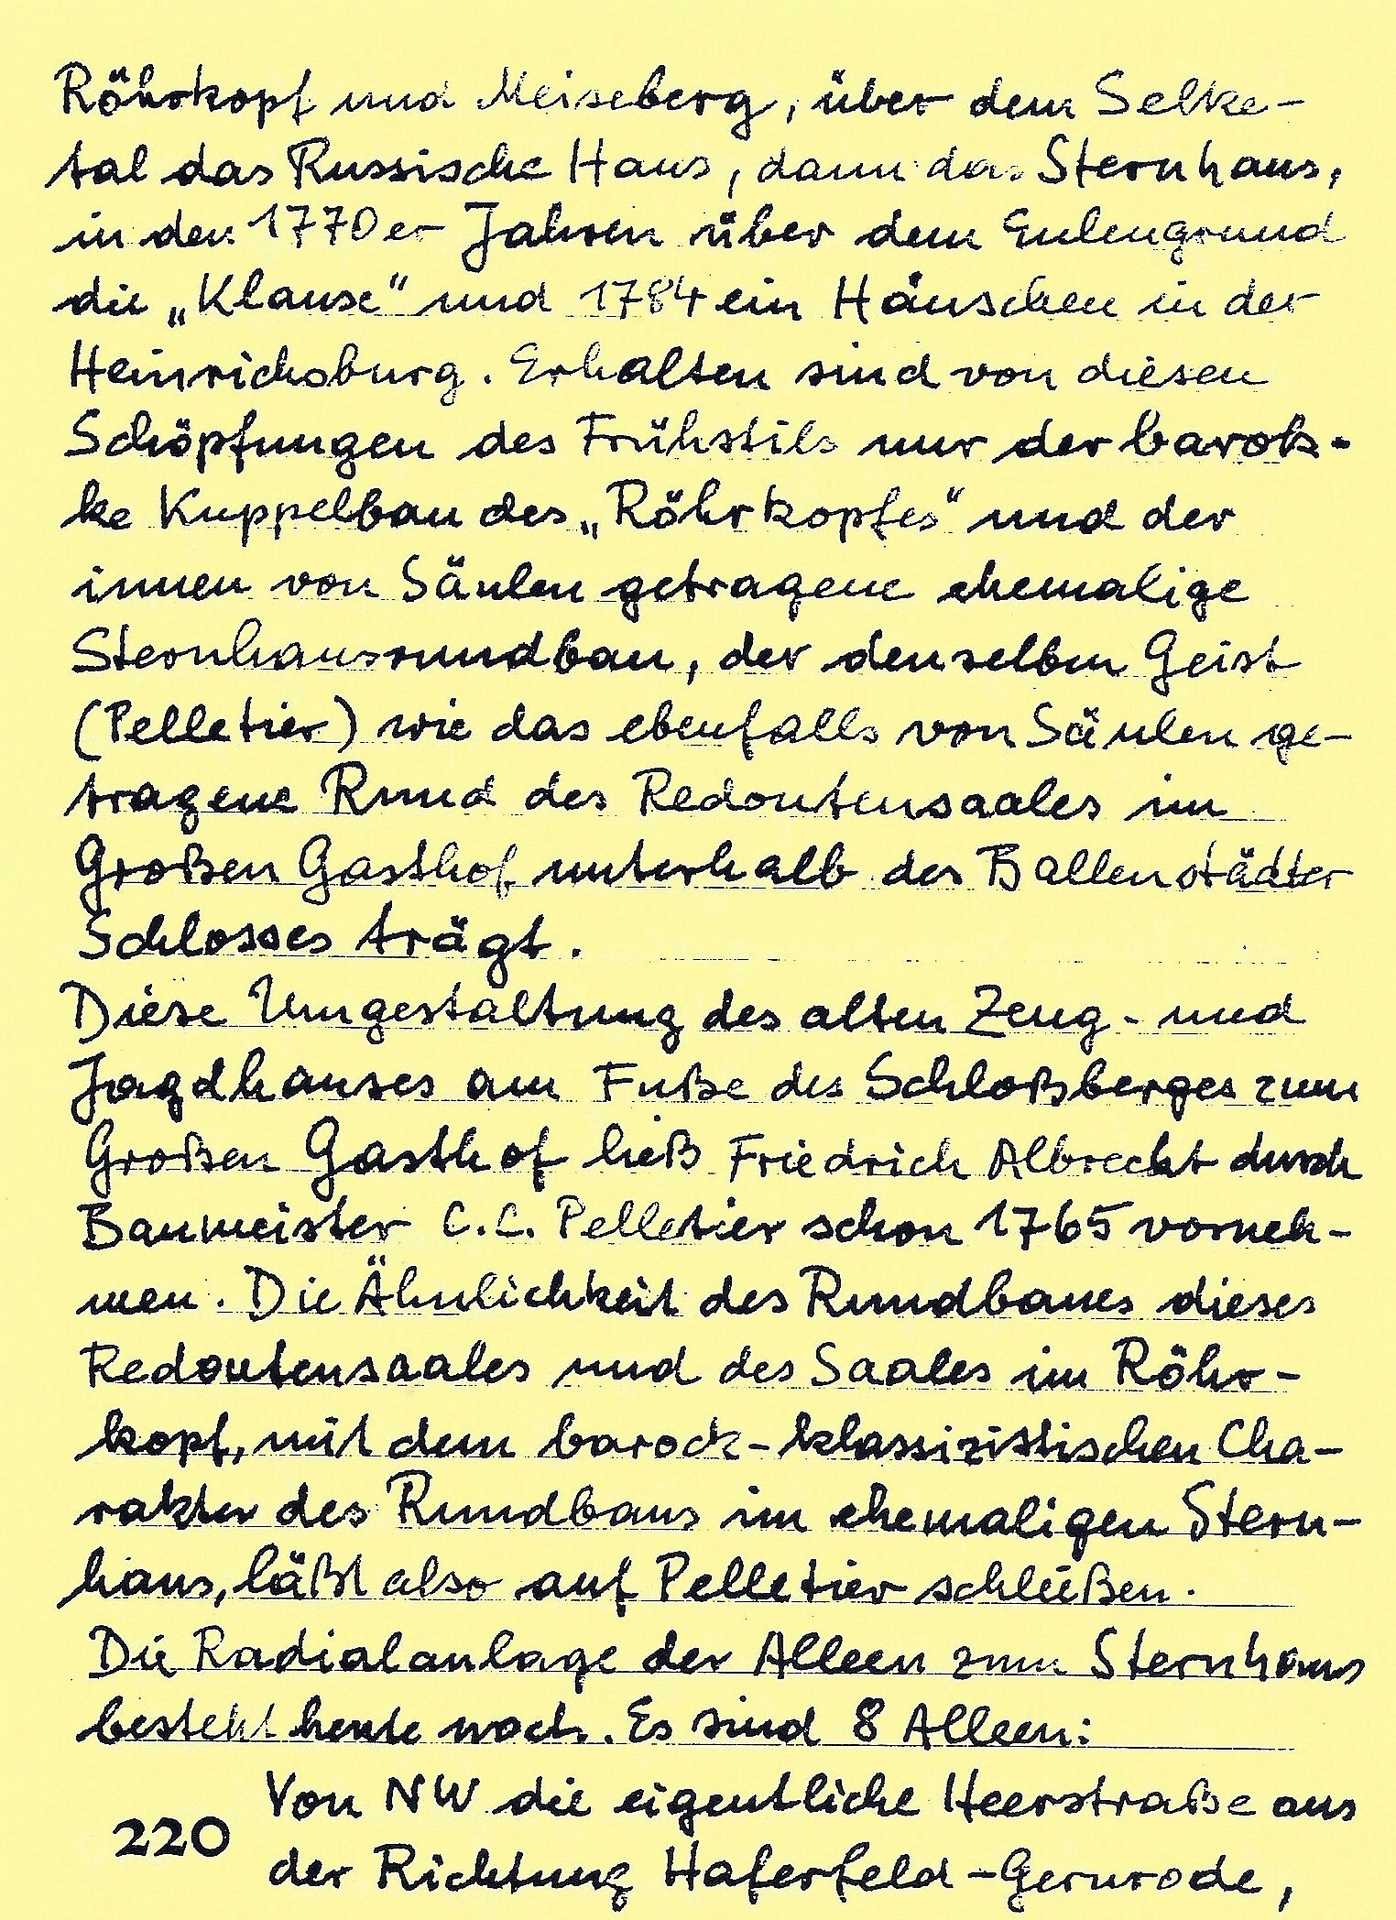 Röhrkopf und Meiseberg, über dem Selke-
tal das Russische Haus, dann das Sternhaus,
in den 1770er Jahren über dem Eulengrund
die „Klause“ und 1784 ein Häuschen in der
Heinrichsburg. Erhalten sind von diesen
Schöpfungen des Frühstils nur der barok-
ke Kuppelbau des „Röhrkopfes“ und der
innen von Säulen getragene ehemalige
Sternhausrundbau, der denselben Geist
(Pelletier) wie das ebenfalls von Säulen ge-
tragene Rund des Redoutensaales im
Großen Gasthof unterhalb des Ballenstädter
Schlosses trägt.
Diese Umgestaltung des alten Zeug- und
Jagdhauses am Fuße des Schloßberges zum
Großen Gasthof ließ Friedrich Albrecht durch
Baumeister C.C. Pelletier schon 1765 vorneh-
men. Die Ähnlichkeit des Rundbaues dieses
Redoutensaales und des Saales im Röhr-
kopf, mit dem barock-klassizistischen Cha-
rakter des Rundbaus im ehemaligen Stern-
haus, läßt also auf Pelletier schließen.
Die Radialanlage der Alleen zum Sternhaus
besteht heute noch. Es sind 8 Alleen:
Von NW die eigentliche Heerstraße aus
der Richtung Haferfeld-Gernrode,
220